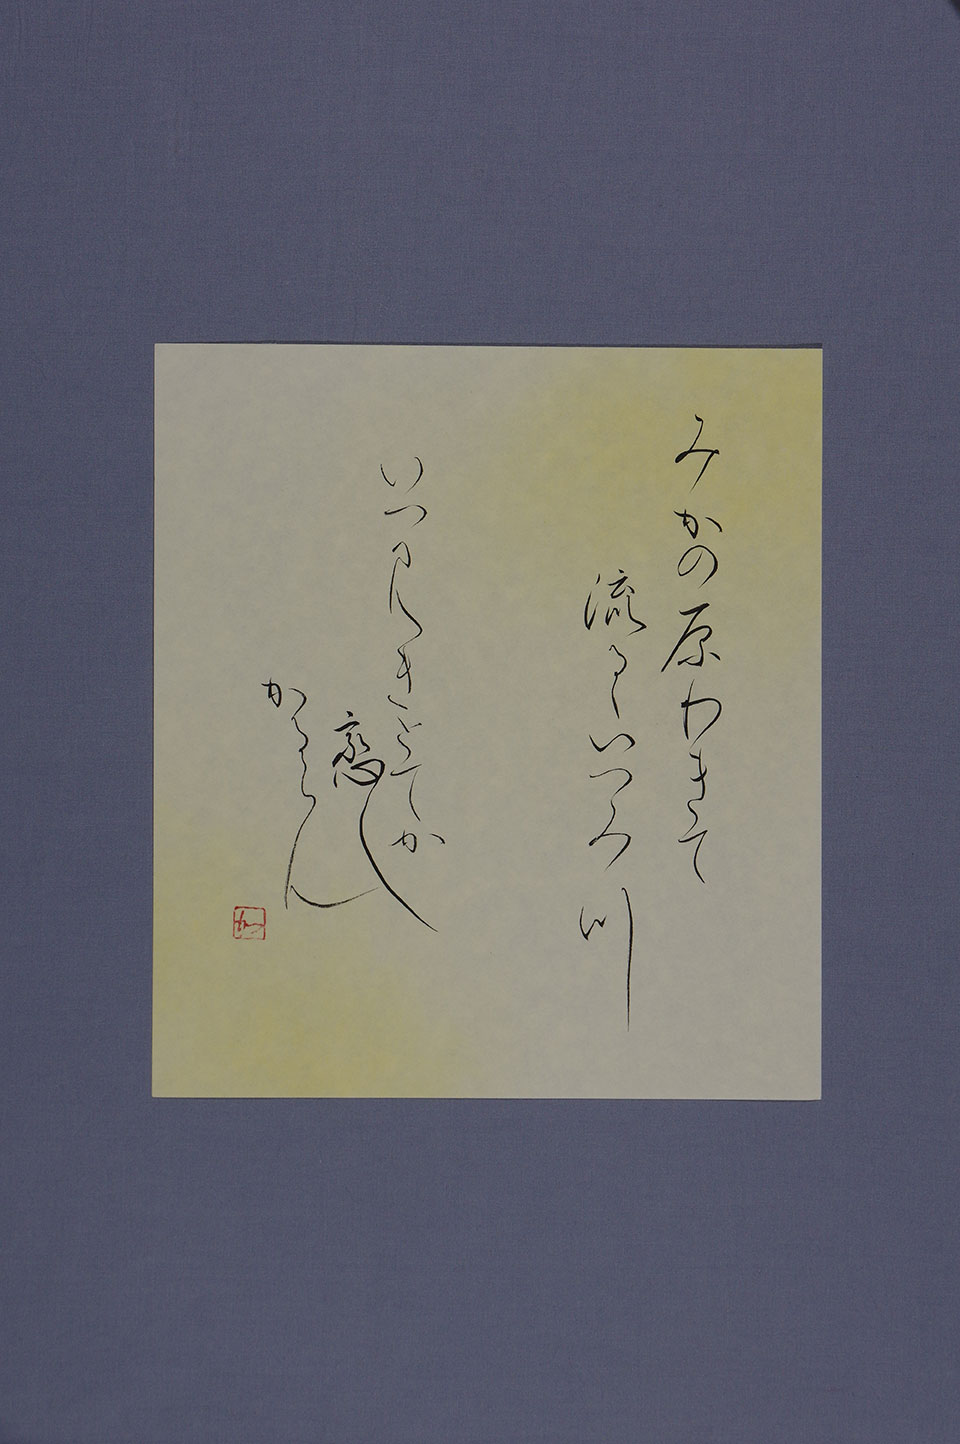 みかの原わきて
流るゝいつみ川
いつ見きとてか
恋し
かるらん